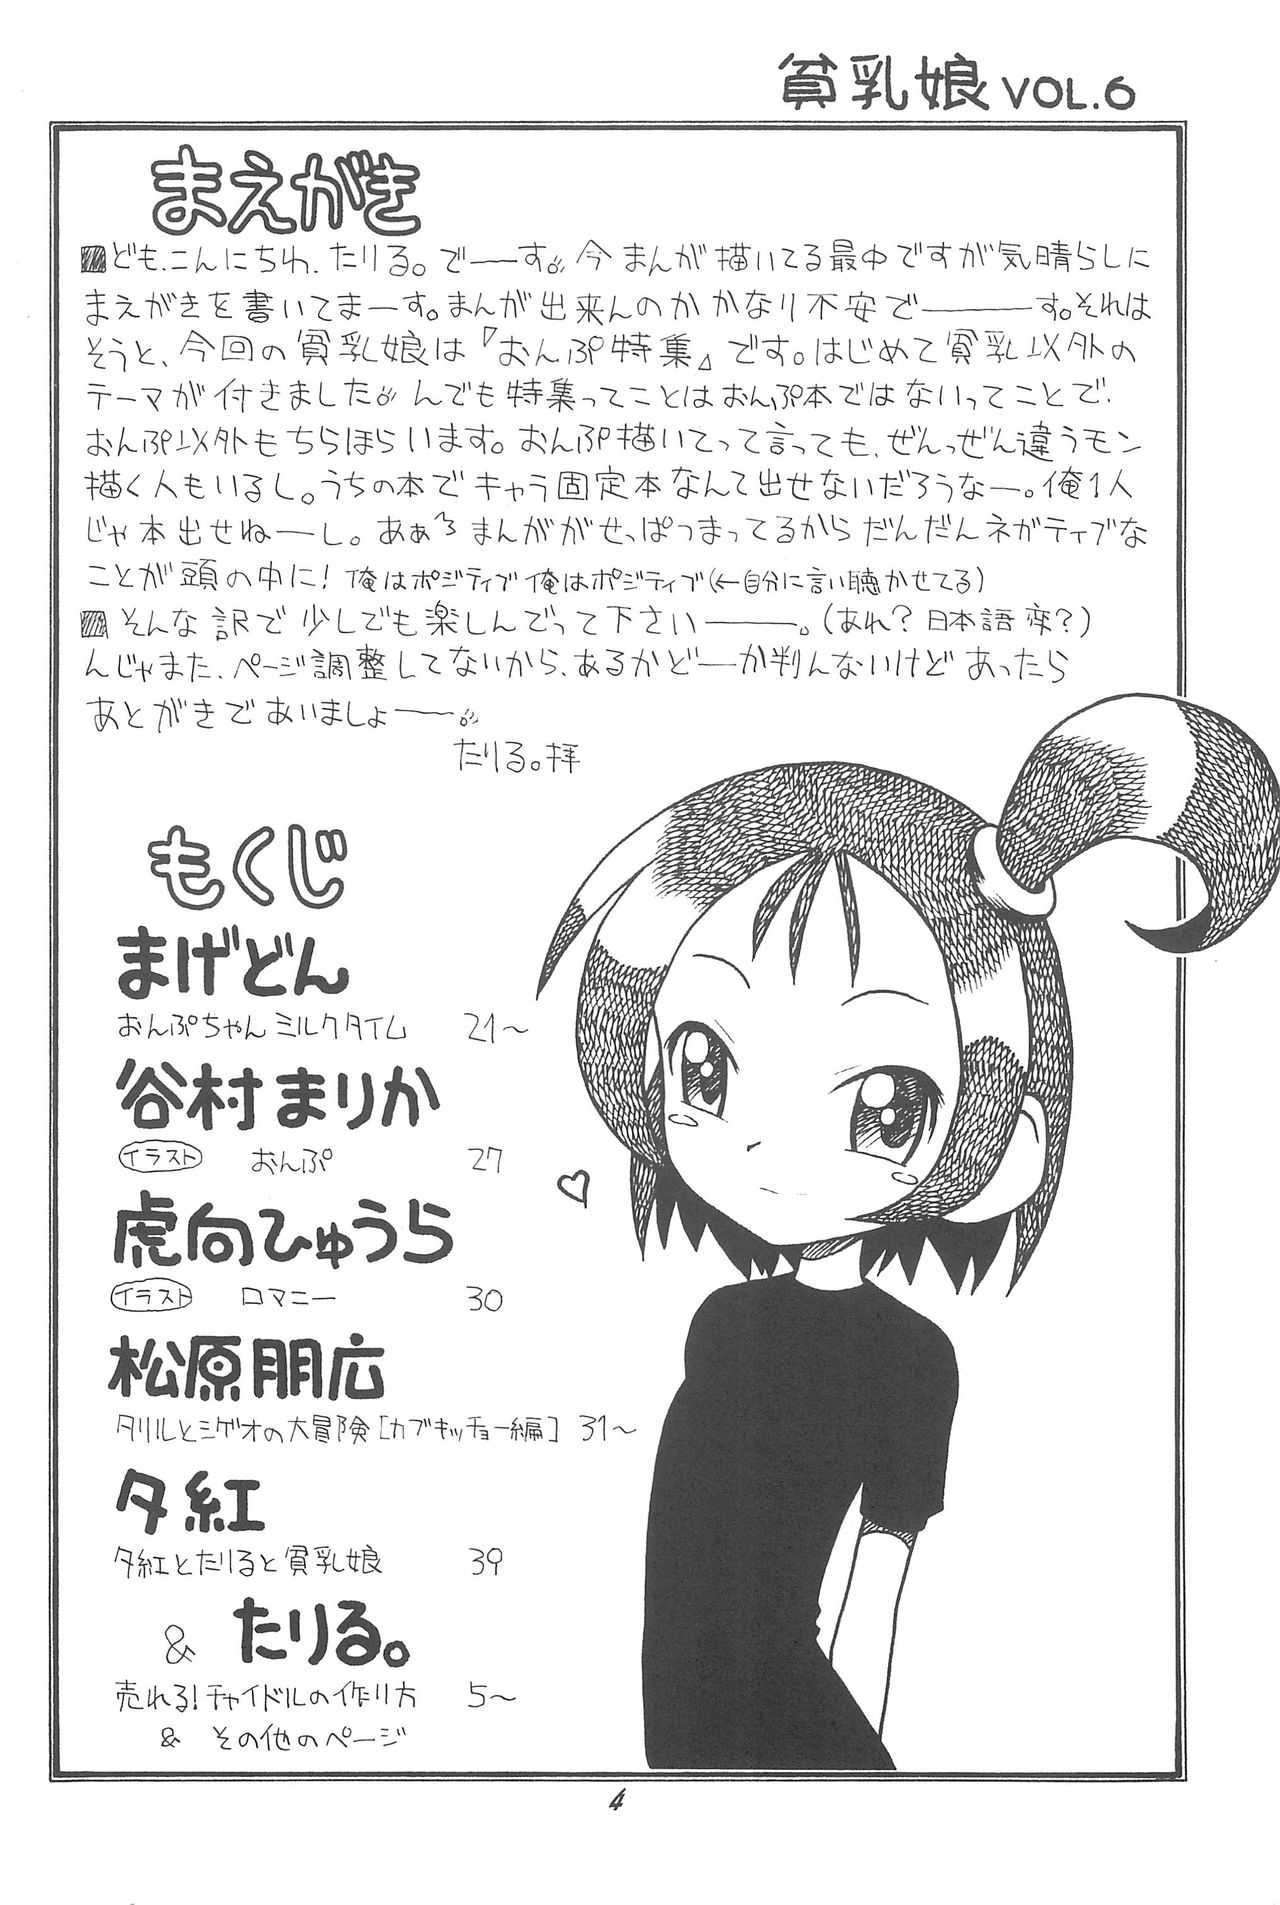 貧乳娘 VOL.6
まえがき
ども、こんにちわ、たりる。でーーす。今まんが描いてる最中ですが気晴らしに
まえがきを書いてまーす。まんが出来んのかかなり不安でーーーす。それは
そうと、今回の貧乳娘は『おんぷ特集』です。はじめて貧乳以外の
テーマが付きました。んでも特集ってことはおんぷ本ではないってことで、
おんぷ以外もちらほらいます。おんぷ描いてって言っても、ぜんっぜん違うモン
描く人もいるし。うちの本でキャラ固定本なんて出せないだろうなー。俺1人
じゃ本出せねーーし。あぁ〜まんががせっぱつまってるからだんだんネガティブな
ことが頭の中に！俺はポジティブ俺はポジティブ(←自分に言い聴かせてる)
そんな訳で少しでも楽しんでって下さいーーー。(あれ？日本語変？)
んじゃまた、ページ調整してないから、あるかどーか判んないけどあったら
あとがきであいましょーー。
たりる。拝
もくじ
まげどん
おんぷちゃんミルクタイム 21〜
谷村まりか
イラスト おんぷ 27
虎向ひゅうら
イラスト ロマニー 30
松原朋広
タリルとシゲオの大冒険[カブキッチョー編] 31〜
夕紅
夕紅とたりると貧乳娘 39
& たりる。
売れる！チャイドルの作り方 5〜
& その他のページ
4